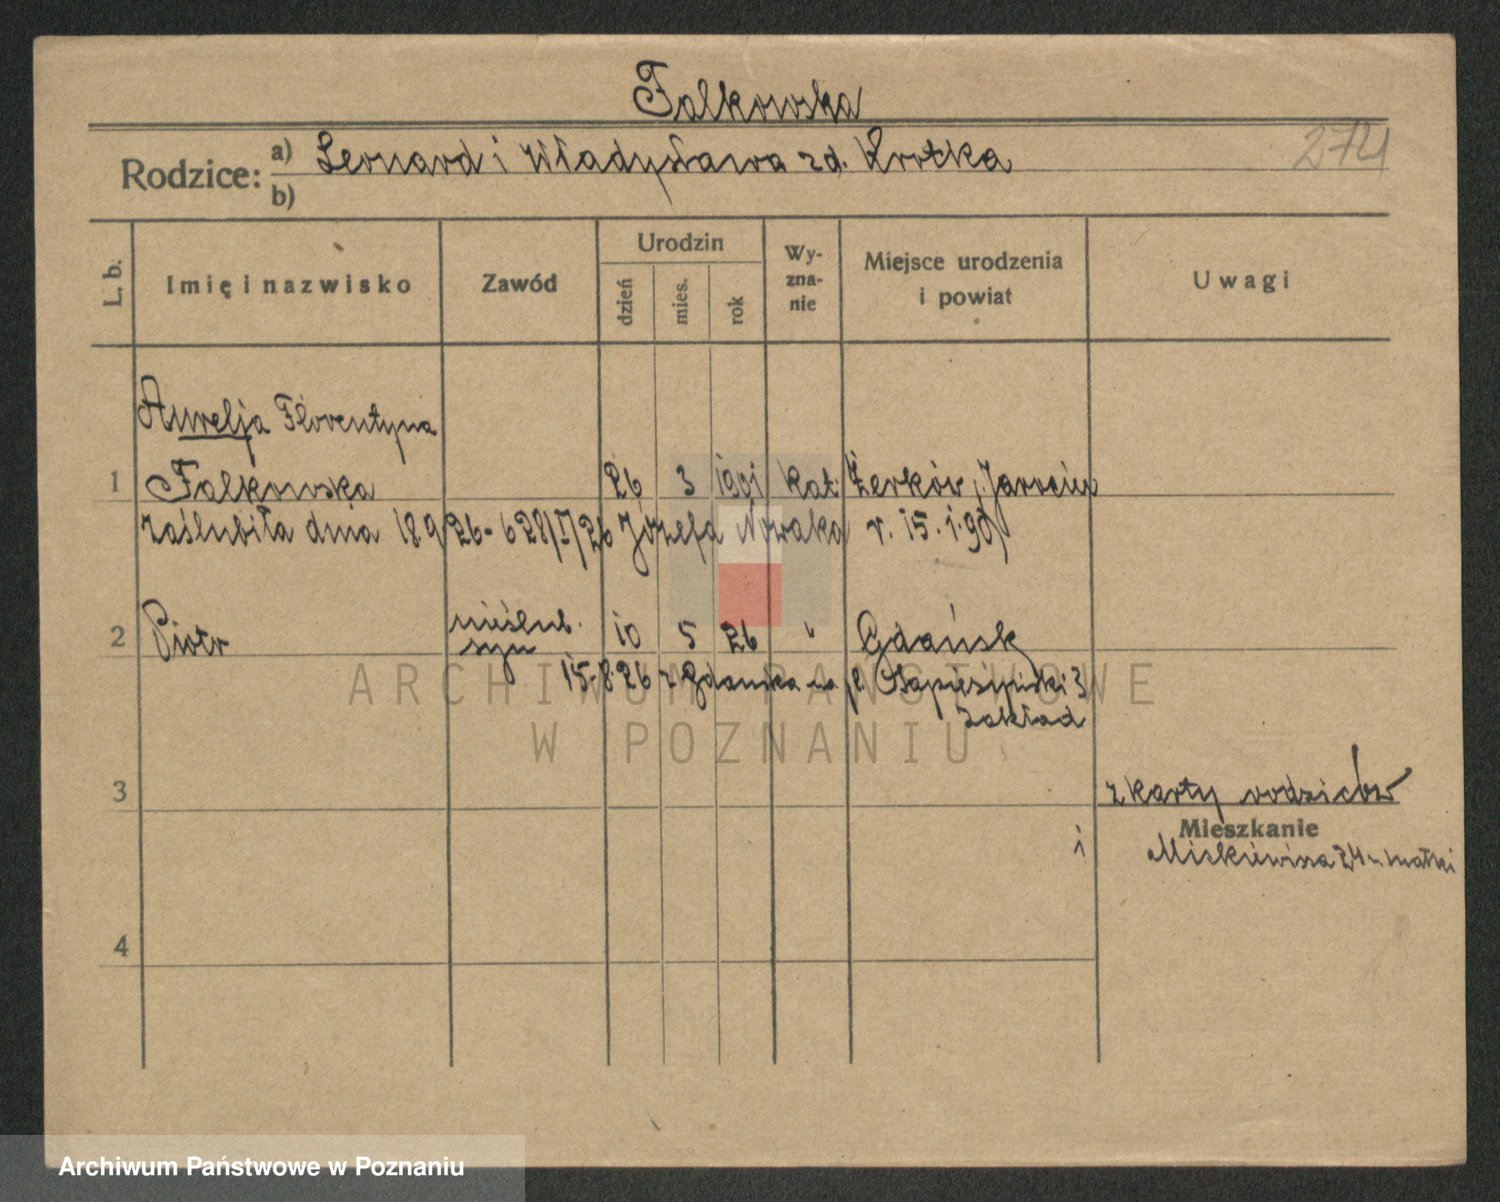 Falkowska
Rodzice: a) Leonard i Władysława zd. Krotka
b)
274
L. b.
Imię i nazwisko
Zawód
Urodzin
dzień
mies.
rok
Wy-
zna-
nie
Miejsce urodzenia
i powiat
Uwagi
Aurelja Florentyna
1 Falkowska 26 3 1901 kat. Żerków, Jarocin
zaślubiła dnia 18 9 26 - 628/I/26 Józefa Nowaka r. 15.1.90
nieślub.
2 Piotr syn 10 5 26 " Gdańsk
15.8.26 z Gdańska na pl. Sapieżyński 3
zakład
ARCHIWUM PAŃSTWOWE
W POZNANIU
3
z karty rodziców
Mieszkanie
24 u matki
4
Archiwum Państwowe w Poznaniu